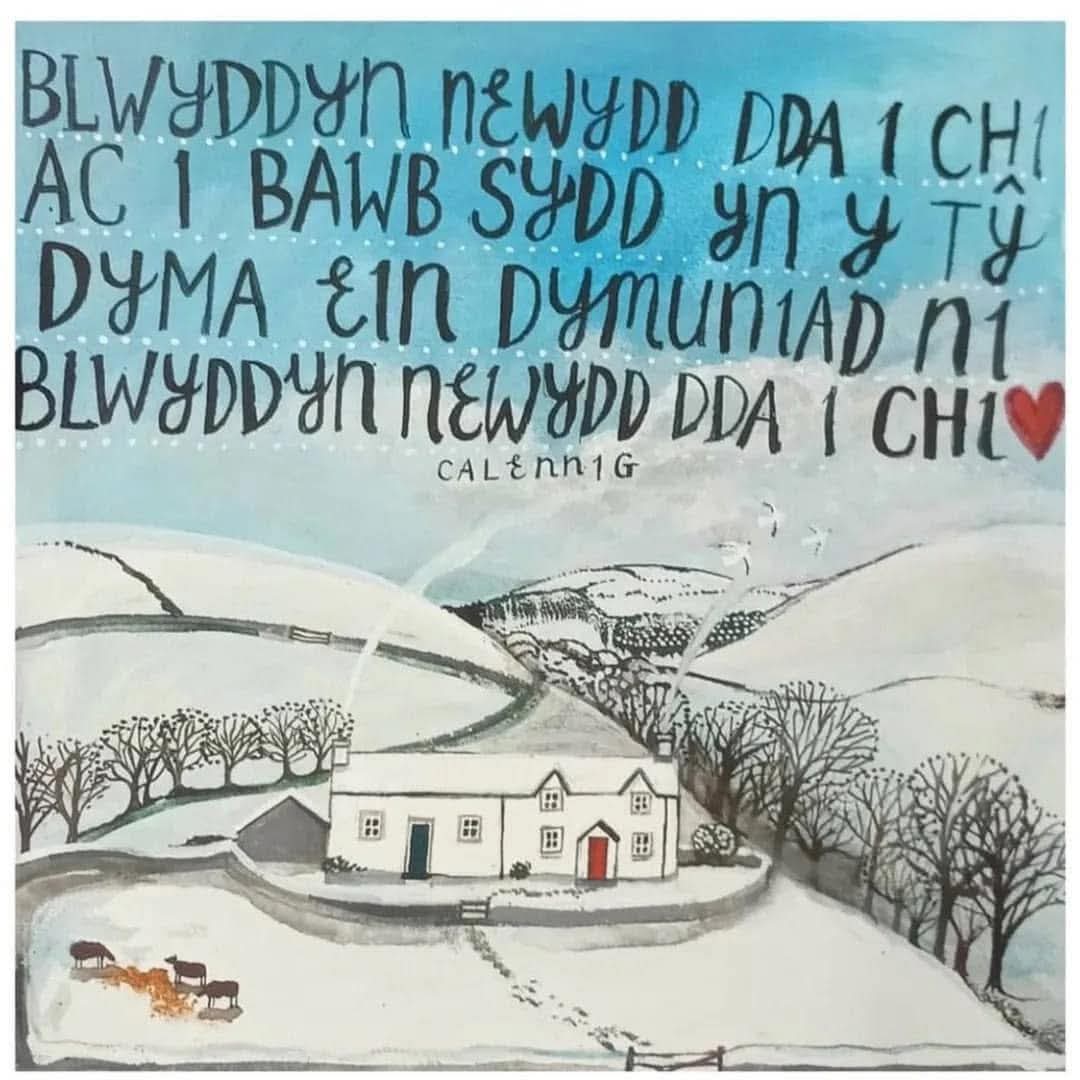 BLWYDDYN NEWYDD DDA I CHI
AC I BAWB SYDD YN Y TŶ
DYMA EIN DYMUNIAD NI
BLWYDDYN NEWYDD DDA I CHI
CALENNIG